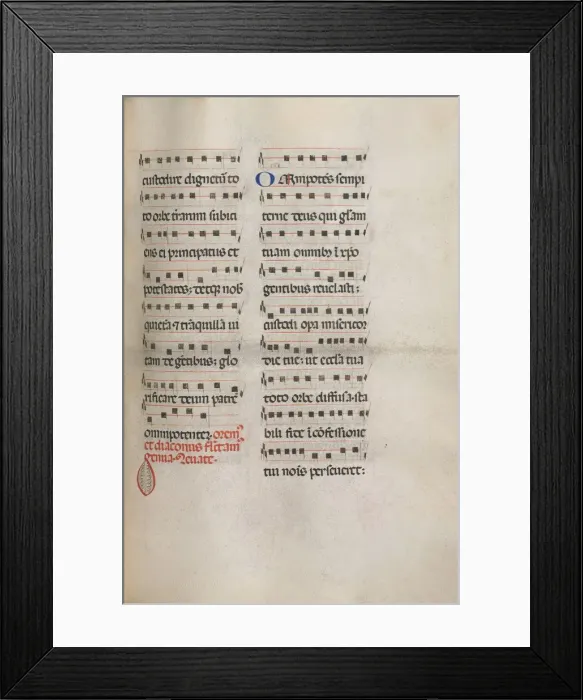 custodire dignetᷣ to
to orbe trãrum subici
ens ei principatus et
potestates: detqȝ nob
quietã ⁊ trãquillã ui
tam degẽtibus: glo
rificare deum patrẽ
omnipotentez. orem᷒
et diaconus flectam᷒
genua. Leuate.
OMnipotẽs sempi
terne deus qui glãm
tuam omnibȝ ĩ xpo
gentibus reuelasti:
custodi opa misericor
die tue: ut ecclã tua
toto orbe diffusa. sta
bili fide ĩ cõfessione
tui nois perseueret: